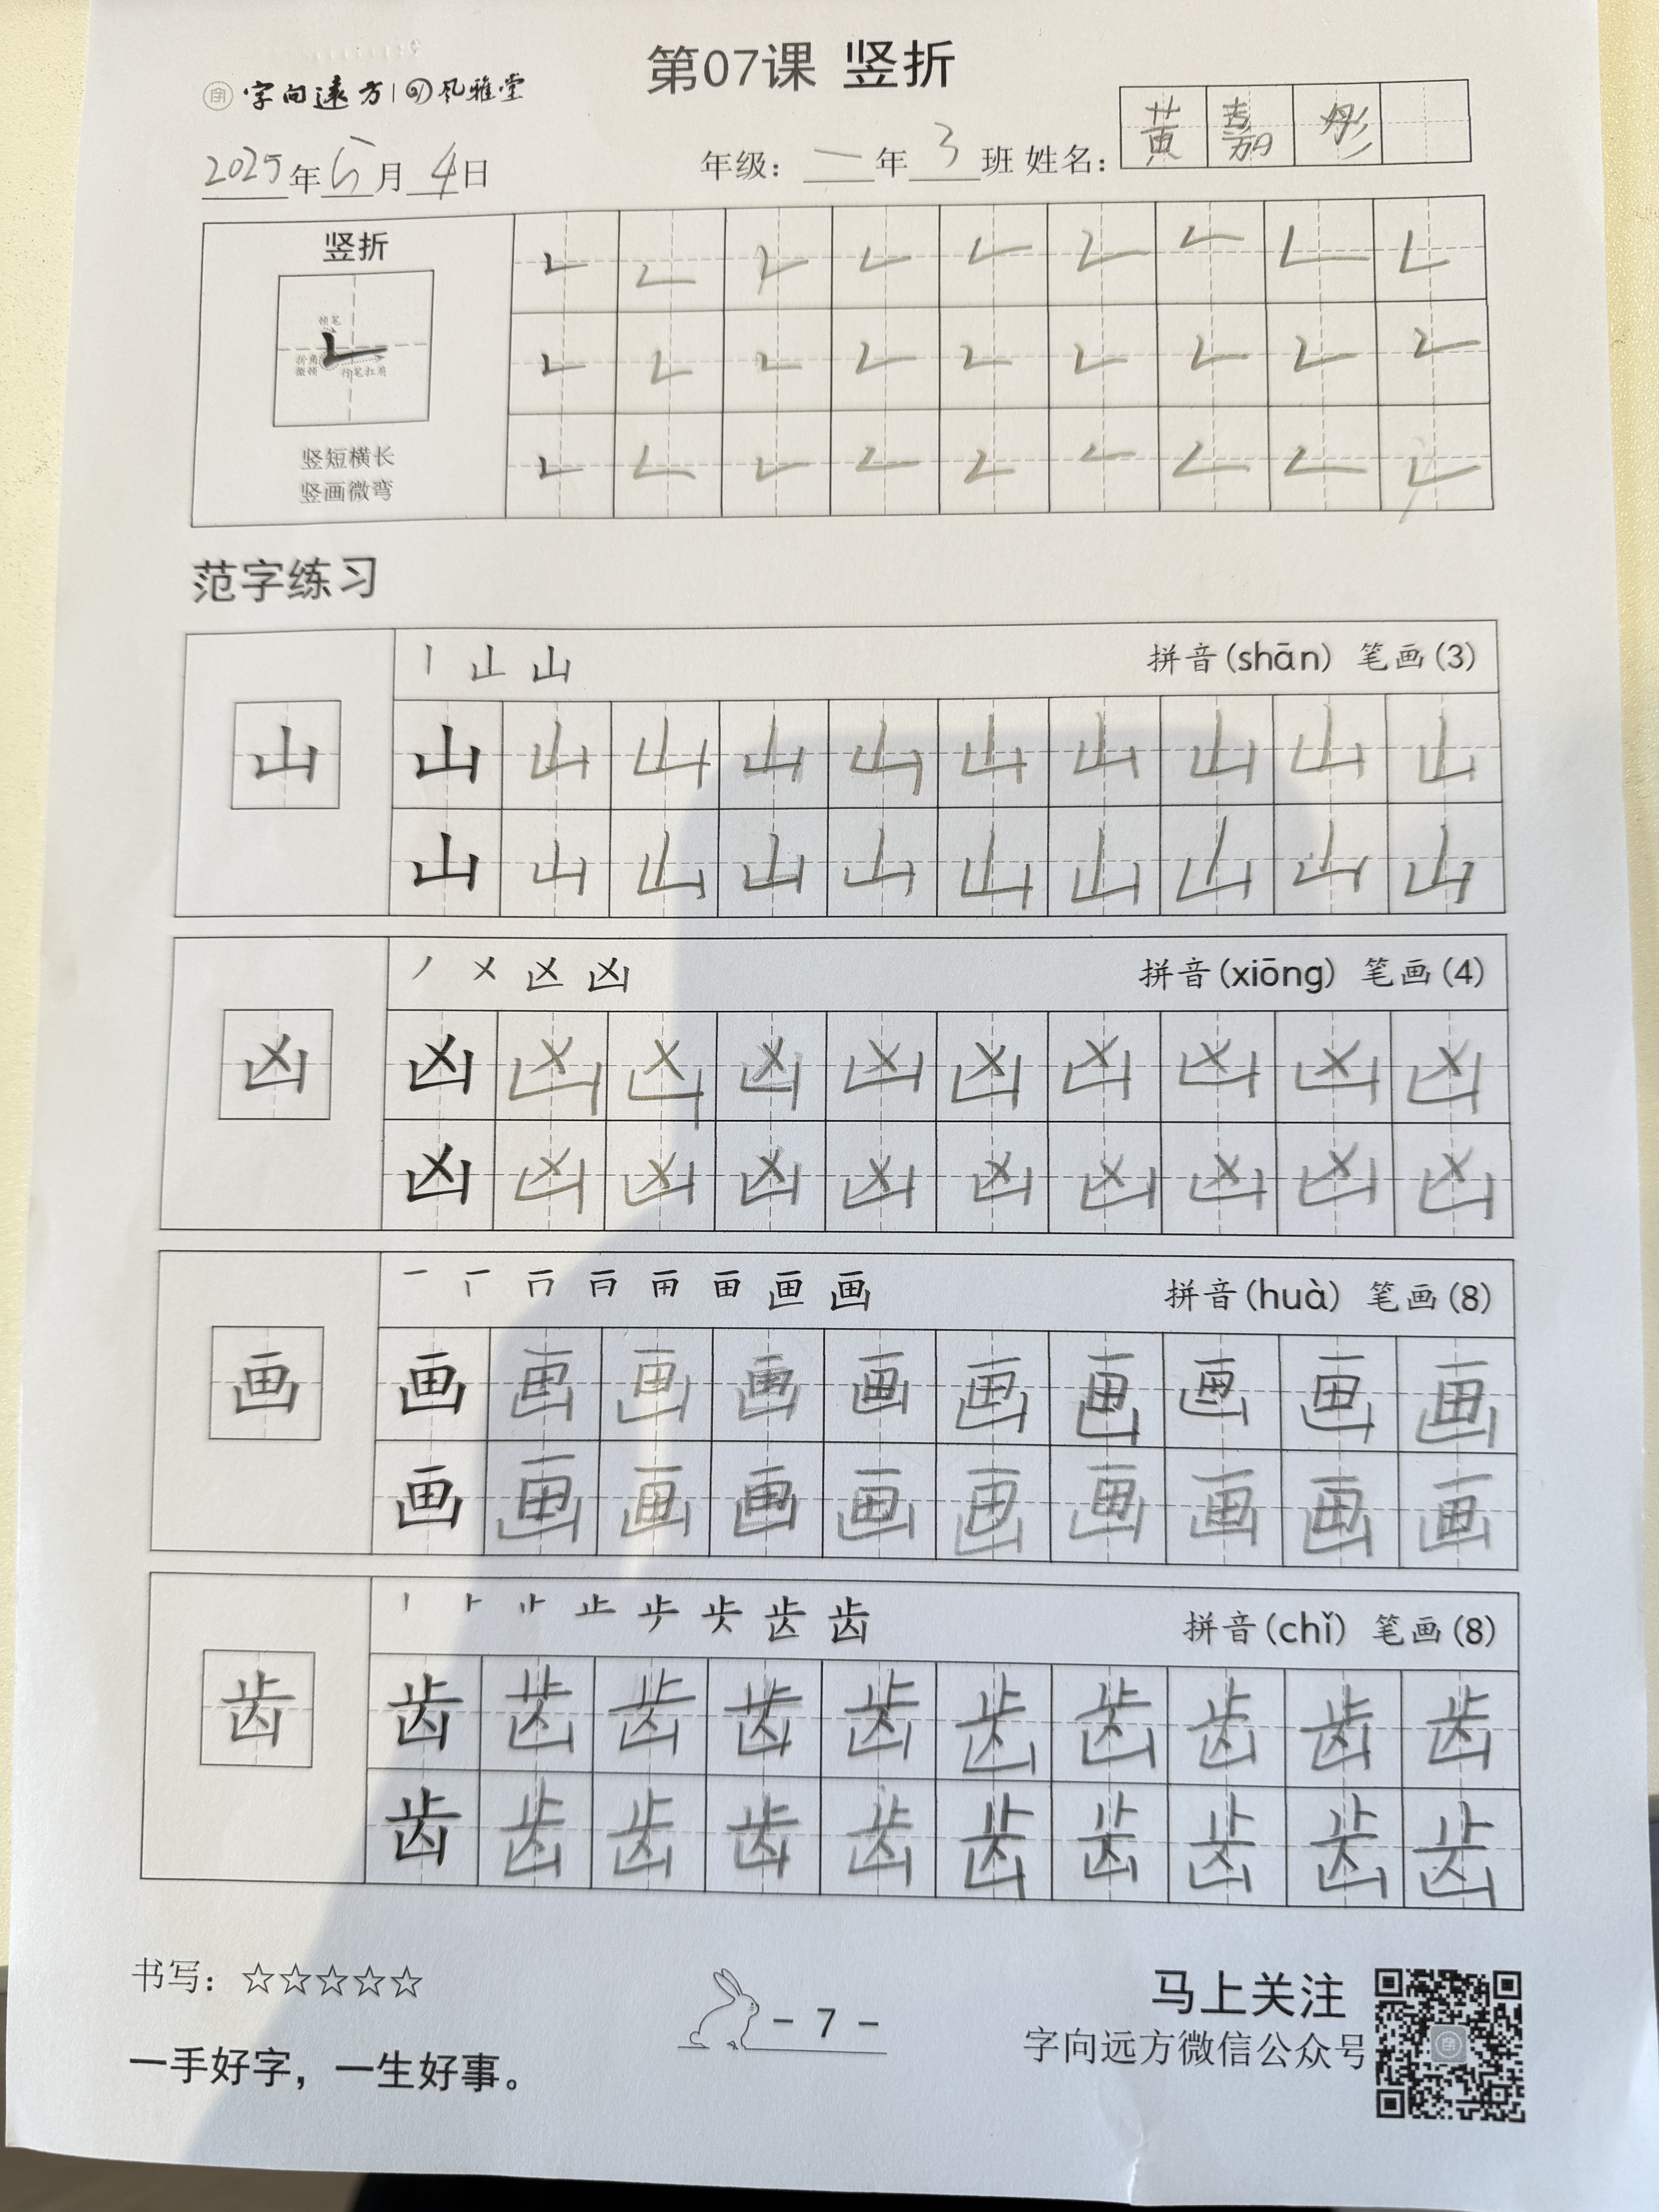 第07课 竖折
字向遠方 风雅堂
黄嘉彤
2025年5月4日 年级：一年3班 姓名：
竖折
领笔
折角
微顿 行笔扛肩
竖短横长
竖画微弯
范字练习
丨 山 拼音(shān) 笔画(3)
山 山 山 山 山 山 山 山 山 山 山
山 山 山 山 山 山 山 山 山 山
丿 㐅 凶 拼音(xiōng) 笔画(4)
凶 凶 凶 凶 凶 凶 凶 凶 凶 凶 凶
凶 凶 凶 凶 凶 凶 凶 凶 凶 凶
一 画 拼音(huà) 笔画(8)
画 画 画 画 画 画 画 画 画 画 画
画 画 画 画 画 画 画 画 画 画
丨 止 齿 拼音(chǐ) 笔画(8)
齿 齿 齿 齿 齿 齿 齿 齿 齿 齿 齿
齿 齿 齿 齿 齿 齿 齿 齿 齿 齿
书写：☆☆☆☆☆
- 7 -
马上关注
字向远方微信公众号
一手好字，一生好事。